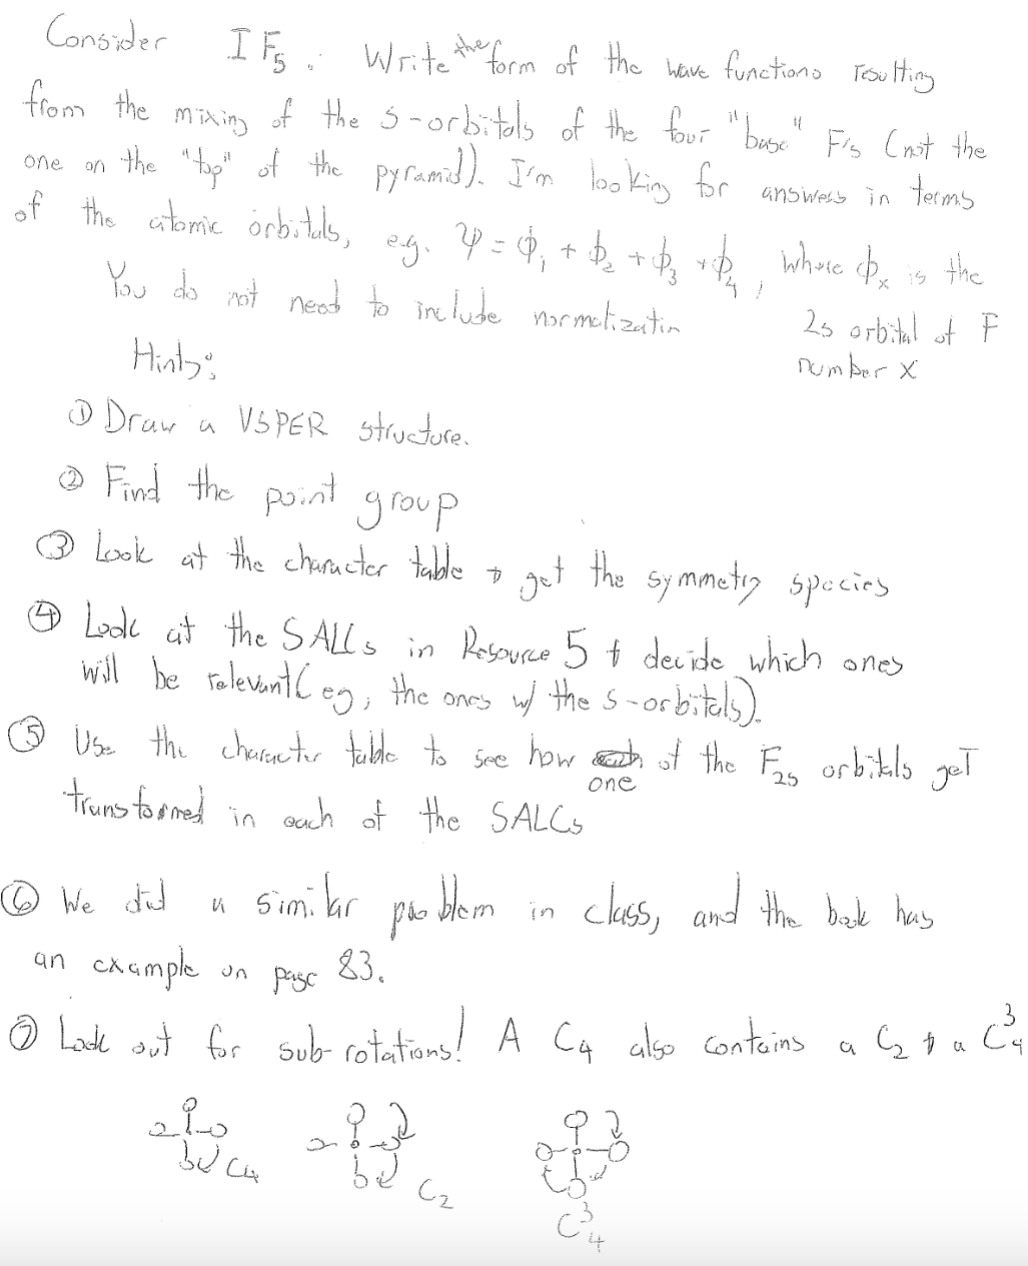 Consider IF5. Write the form of the wave functions resulting
from the mixing of the s-orbitals of the four "base" F's (not the
one on the "top" of the pyramid). I'm looking for answers in terms
of the atomic orbitals, e.g. ψ = ϕ1 + ϕ2 + ϕ3 + ϕ4, where ϕx is the
2s orbital of F
number x
You do not need to include normalization
Hints:
① Draw a VSPER structure.
② Find the point group
③ Look at the character table → get the symmetry species
④ Look at the SALCs in Resource 5 & decide which ones
will be relevant (eg, the ones w/ the s-orbitals).
⑤ Use the character table to see how one of the F2s orbitals get
transformed in each of the SALCs
⑥ We did a similar problem in class, and the book has
an example on page 83.
⑦ Look out for sub-rotations! A C4 also contains a C2 & a C4^3
C4
C2
C4^3